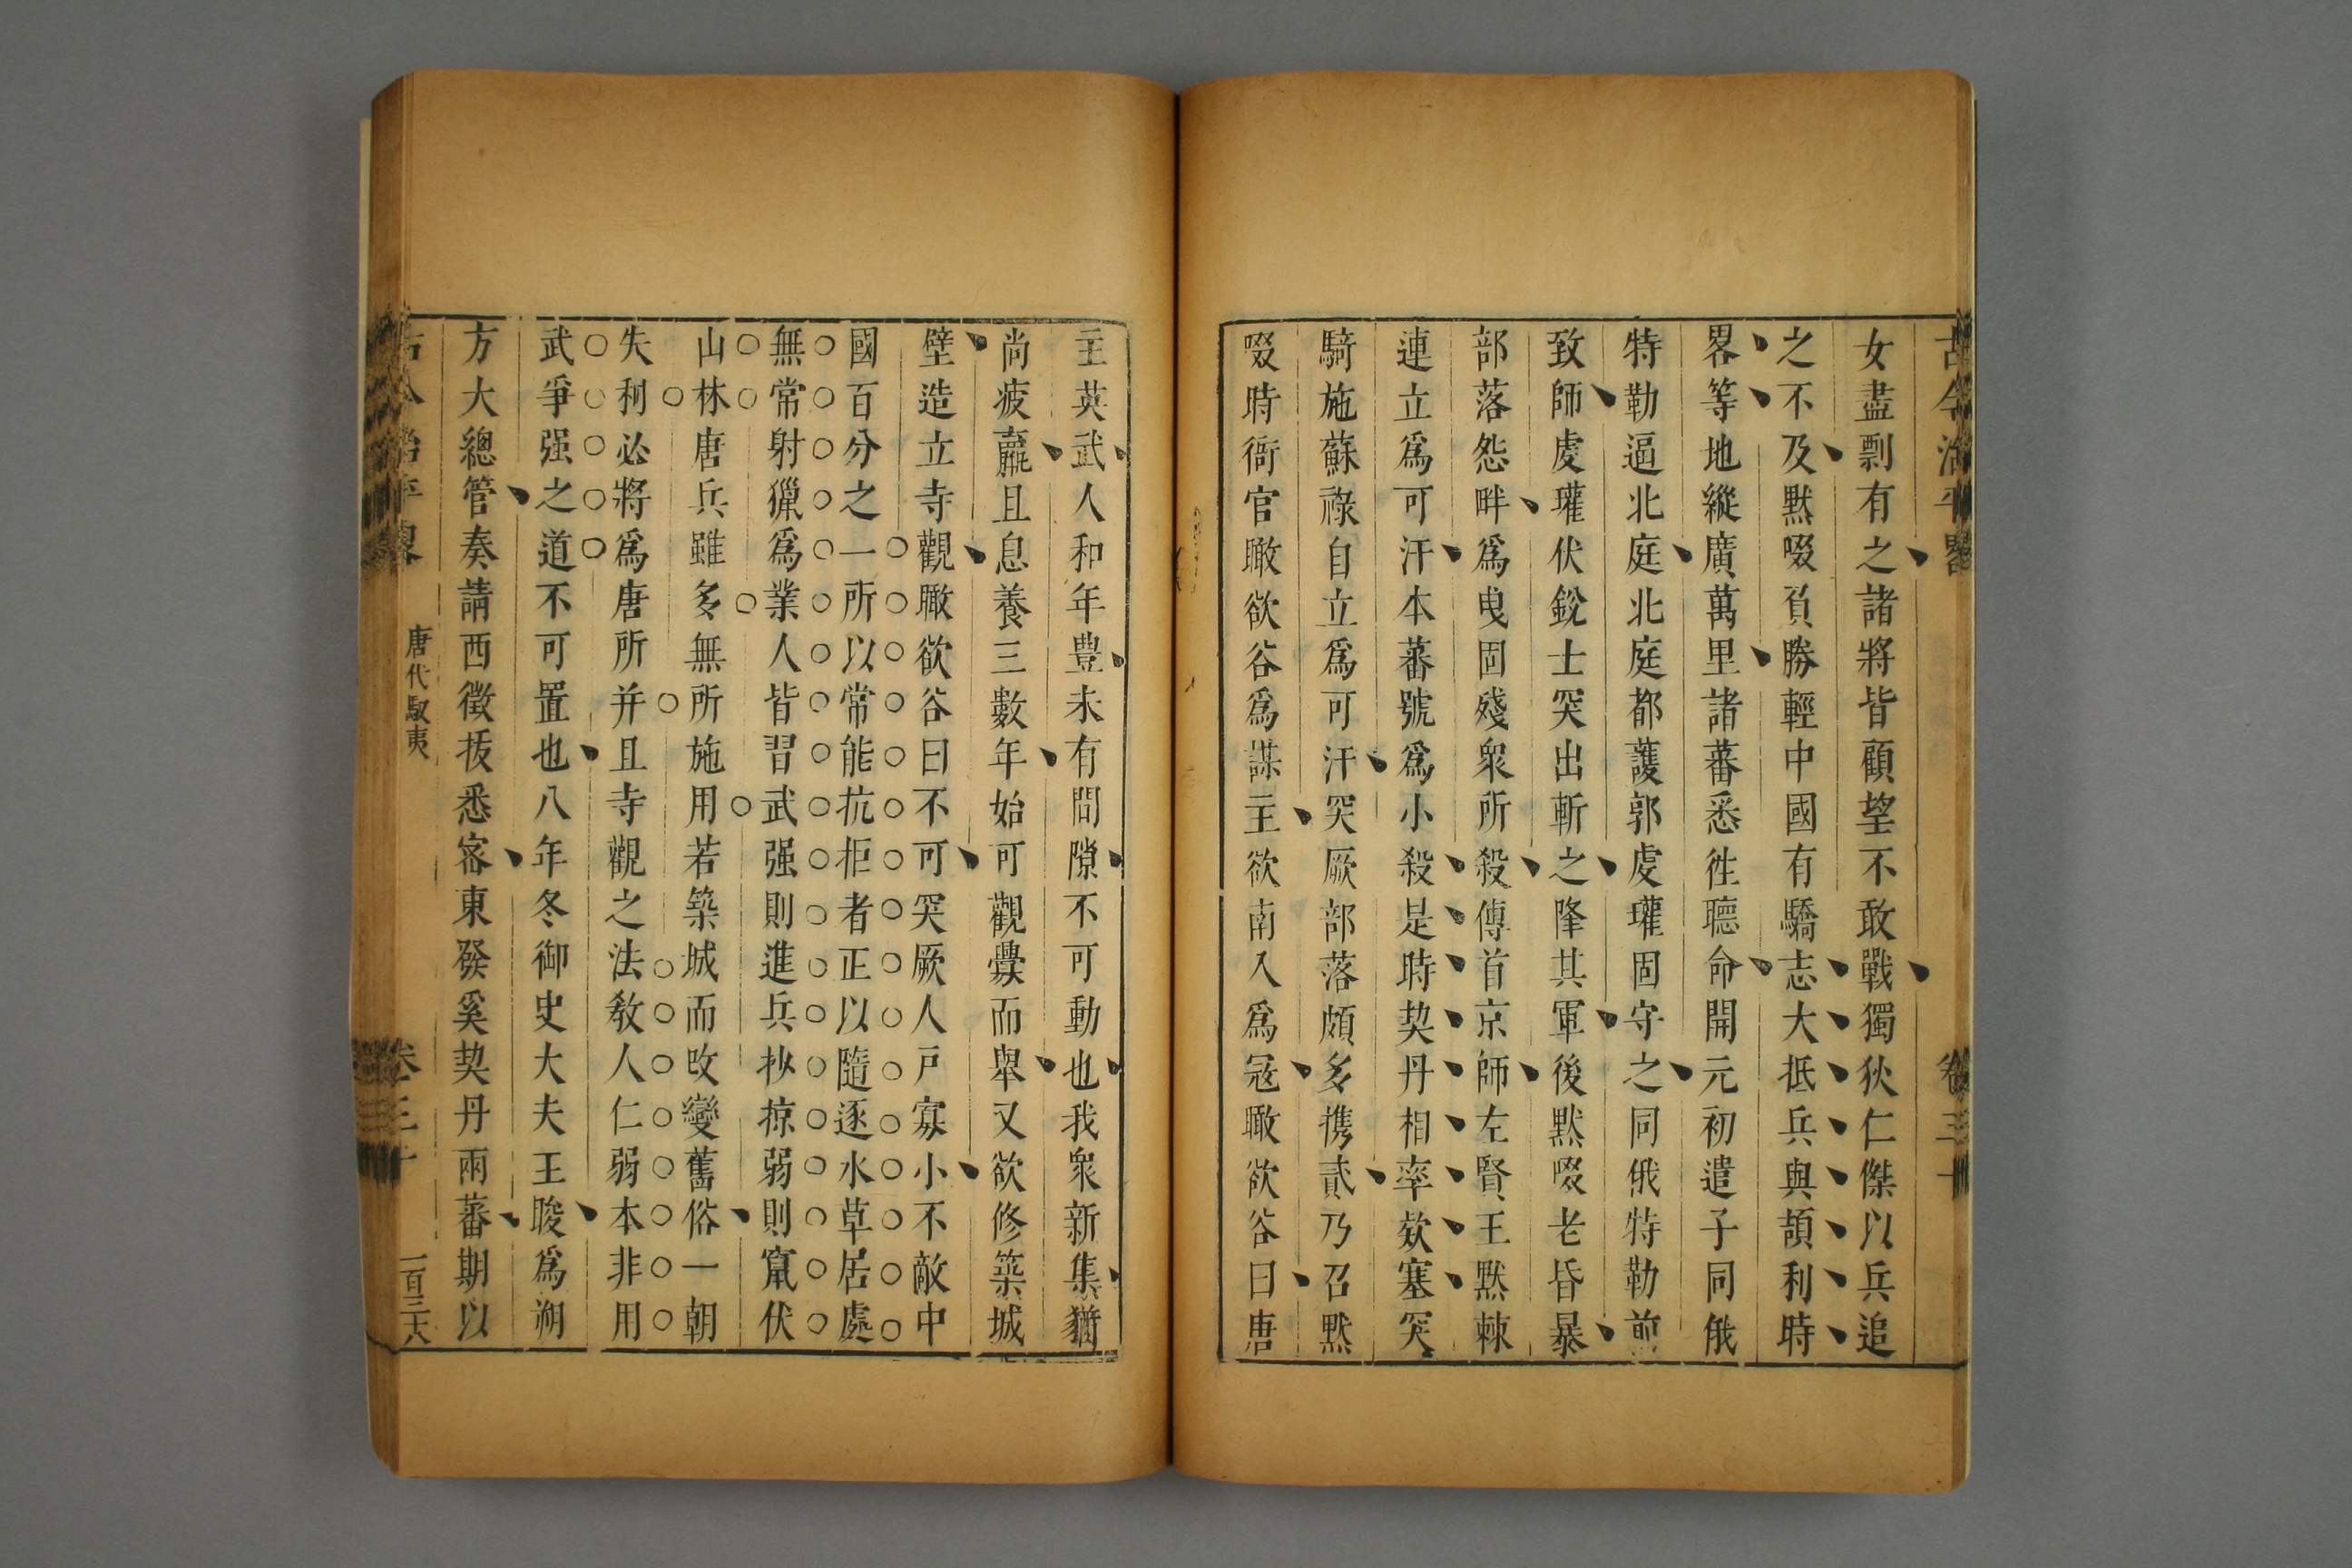 古今治平畧
卷三十
女盡剽有之諸將皆顧望不敢戰獨狄仁傑以兵追
之不及默啜負勝輕中國有驕志大抵兵與頡利時
畧等地縱廣萬里諸蕃悉徃聽命開元初遣子同俄
特勒逼北庭北庭都護郭虔瓘固守之同俄特勒前
致師虔瓘伏銳士突出斬之降其軍後默啜老昏暴
部落怨畔爲曳固殘衆所殺傳首京師左賢王默棘
連立爲可汗本蕃號爲小殺是時契丹相率欵塞突
騎施蘇祿自立爲可汗突厥部落頗多携貳乃召默
啜時衙官暾欲谷爲謀主欲南入爲寇暾欲谷曰唐
主英武人和年豐未有間隙不可動也我衆新集猶
尚疲羸且息養三數年始可觀釁而舉又欲修築城
壁造立寺觀暾欲谷曰不可突厥人戶寡小不敵中
國百分之一所以常能抗拒者正以隨逐水草居處
無常射獵爲業人皆習武强則進兵抄掠弱則竄伏
山林唐兵雖多無所施用若築城而改變舊俗一朝
失利必將爲唐所并且寺觀之法敎人仁弱本非用
武爭强之道不可置也八年冬御史大夫王晙爲朔
方大總管奏請西徵拔悉密東發奚契丹兩蕃期以
古今治平畧
唐代馭夷
卷三十
一百三六